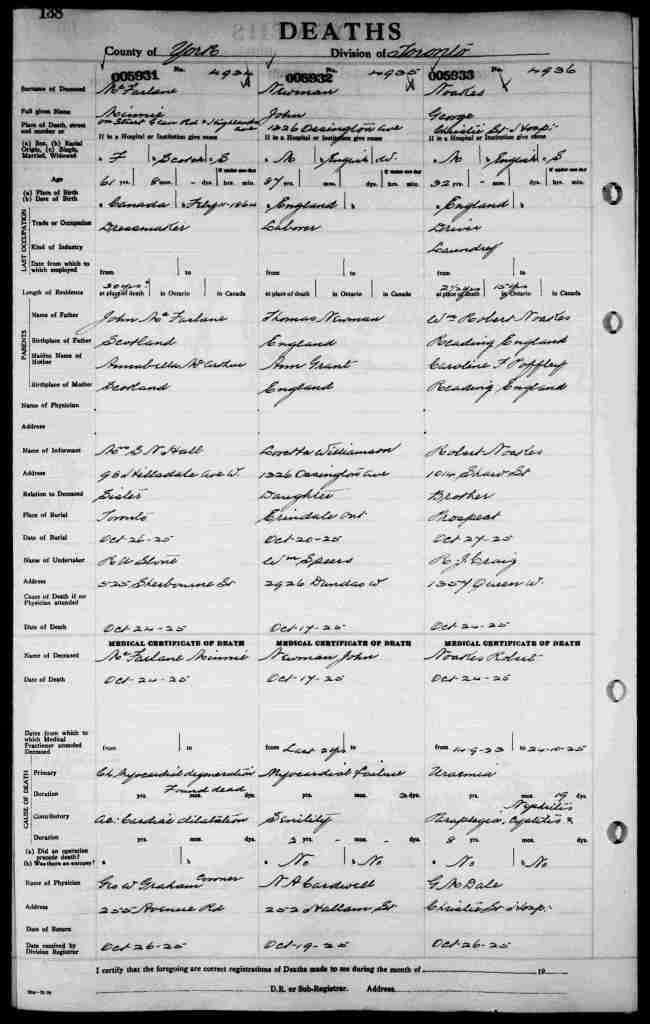 138
DEATHS
County of York Division of Toronto
005931 No. 4934 005932 No. 4935 005933 No. 4936
Surname of Deceased McFarlane Newman Noakes
Full given Name Minnie John George
Place of Death, street and number or Glen Rd & Highland Ave 1326 Ossington Ave Christie St Hosp.
If in a Hospital or Institution give name If in a Hospital or Institution give name If in a Hospital or Institution give name
(a) Sex, (b) Racial Origin, (c) Single, Married, Widowed F Scotch S M English W. M English S
If under one day If under one day If under one day
Age 61 yrs. 8 mos. - dys. hrs. min. 87 yrs. mos. dys. hrs. min. 32 yrs. - mos. dys. hrs. min.
(a) Place of Birth (b) Date of Birth Canada Feby 11-1864 England England
LAST OCCUPATION
Trade or Occupation Dressmaker Laborer Driver
Kind of Industry Laundry
Date from which to which employed from to from to from to
Length of Residence 30 yrs 2½ yrs 15 yrs
at place of death in Ontario in Canada at place of death in Ontario in Canada at place of death in Ontario in Canada
PARENTS
Name of Father John McFarlane Thomas Newman Wm Robert Noakes
Birthplace of Father Scotland England Reading England
Maiden Name of Mother Annabella McArthur Ann Grant Caroline F Poffley
Birthplace of Mother Scotland England Reading England
Name of Physician
Address
Name of Informant Mrs G N Hall Loretta Williamson Robert Noakes
Address 98 Hillsdale Ave W. 1326 Ossington Ave 1014 Shaw St
Relation to Deceased Sister Daughter Brother
Place of Burial Toronto Erindale Ont Prospect
Date of Burial Oct-26-25 Oct-20-25 Oct-27-25
Name of Undertaker R A Stone Wm Speers R. J. Craig
Address 525 Sherbourne St 2926 Dundas W 1357 Queen W.
Cause of Death if no Physician attended
Date of Death Oct-24-25 Oct-17-25 Oct-24-25
MEDICAL CERTIFICATE OF DEATH MEDICAL CERTIFICATE OF DEATH MEDICAL CERTIFICATE OF DEATH
Name of Deceased McFarlane Minnie Newman John Noakes Robert
Date of Death Oct-24-25 Oct-17-25 Oct-24-25
Dates from which to which Medical Practitioner attended Deceased from to from Last 2 yrs to from 14-9-23 to 24-10-25
CAUSE OF DEATH
Primary Ch. Myocardial degeneration Myocardial failure Uraemia
Duration yrs. Found dead mos. dys. yrs. mos. dys. yrs. mos. 19 dys.
Contributory Ac. Cardiac dilatation Senility Paraplegia, Cystitis & Nephritis
Duration yrs. mos. dys. 2 yrs. - mos. - dys. 8 yrs. mos. dys.
(a) Did an operation precede death? (b) Was there an autopsy? No No No No
Name of Physician Geo W Graham Coroner N A Cardwell G. A. Dale
Address 255 Avenue Rd 252 Hallam St Christie St Hosp.
Date of Return
Date received by Division Registrar Oct-26-25 Oct-19-25 Oct-26-25
I certify that the foregoing are correct registrations of Deaths made to me during the month of 19
D.R. or Sub-Registrar. Address.